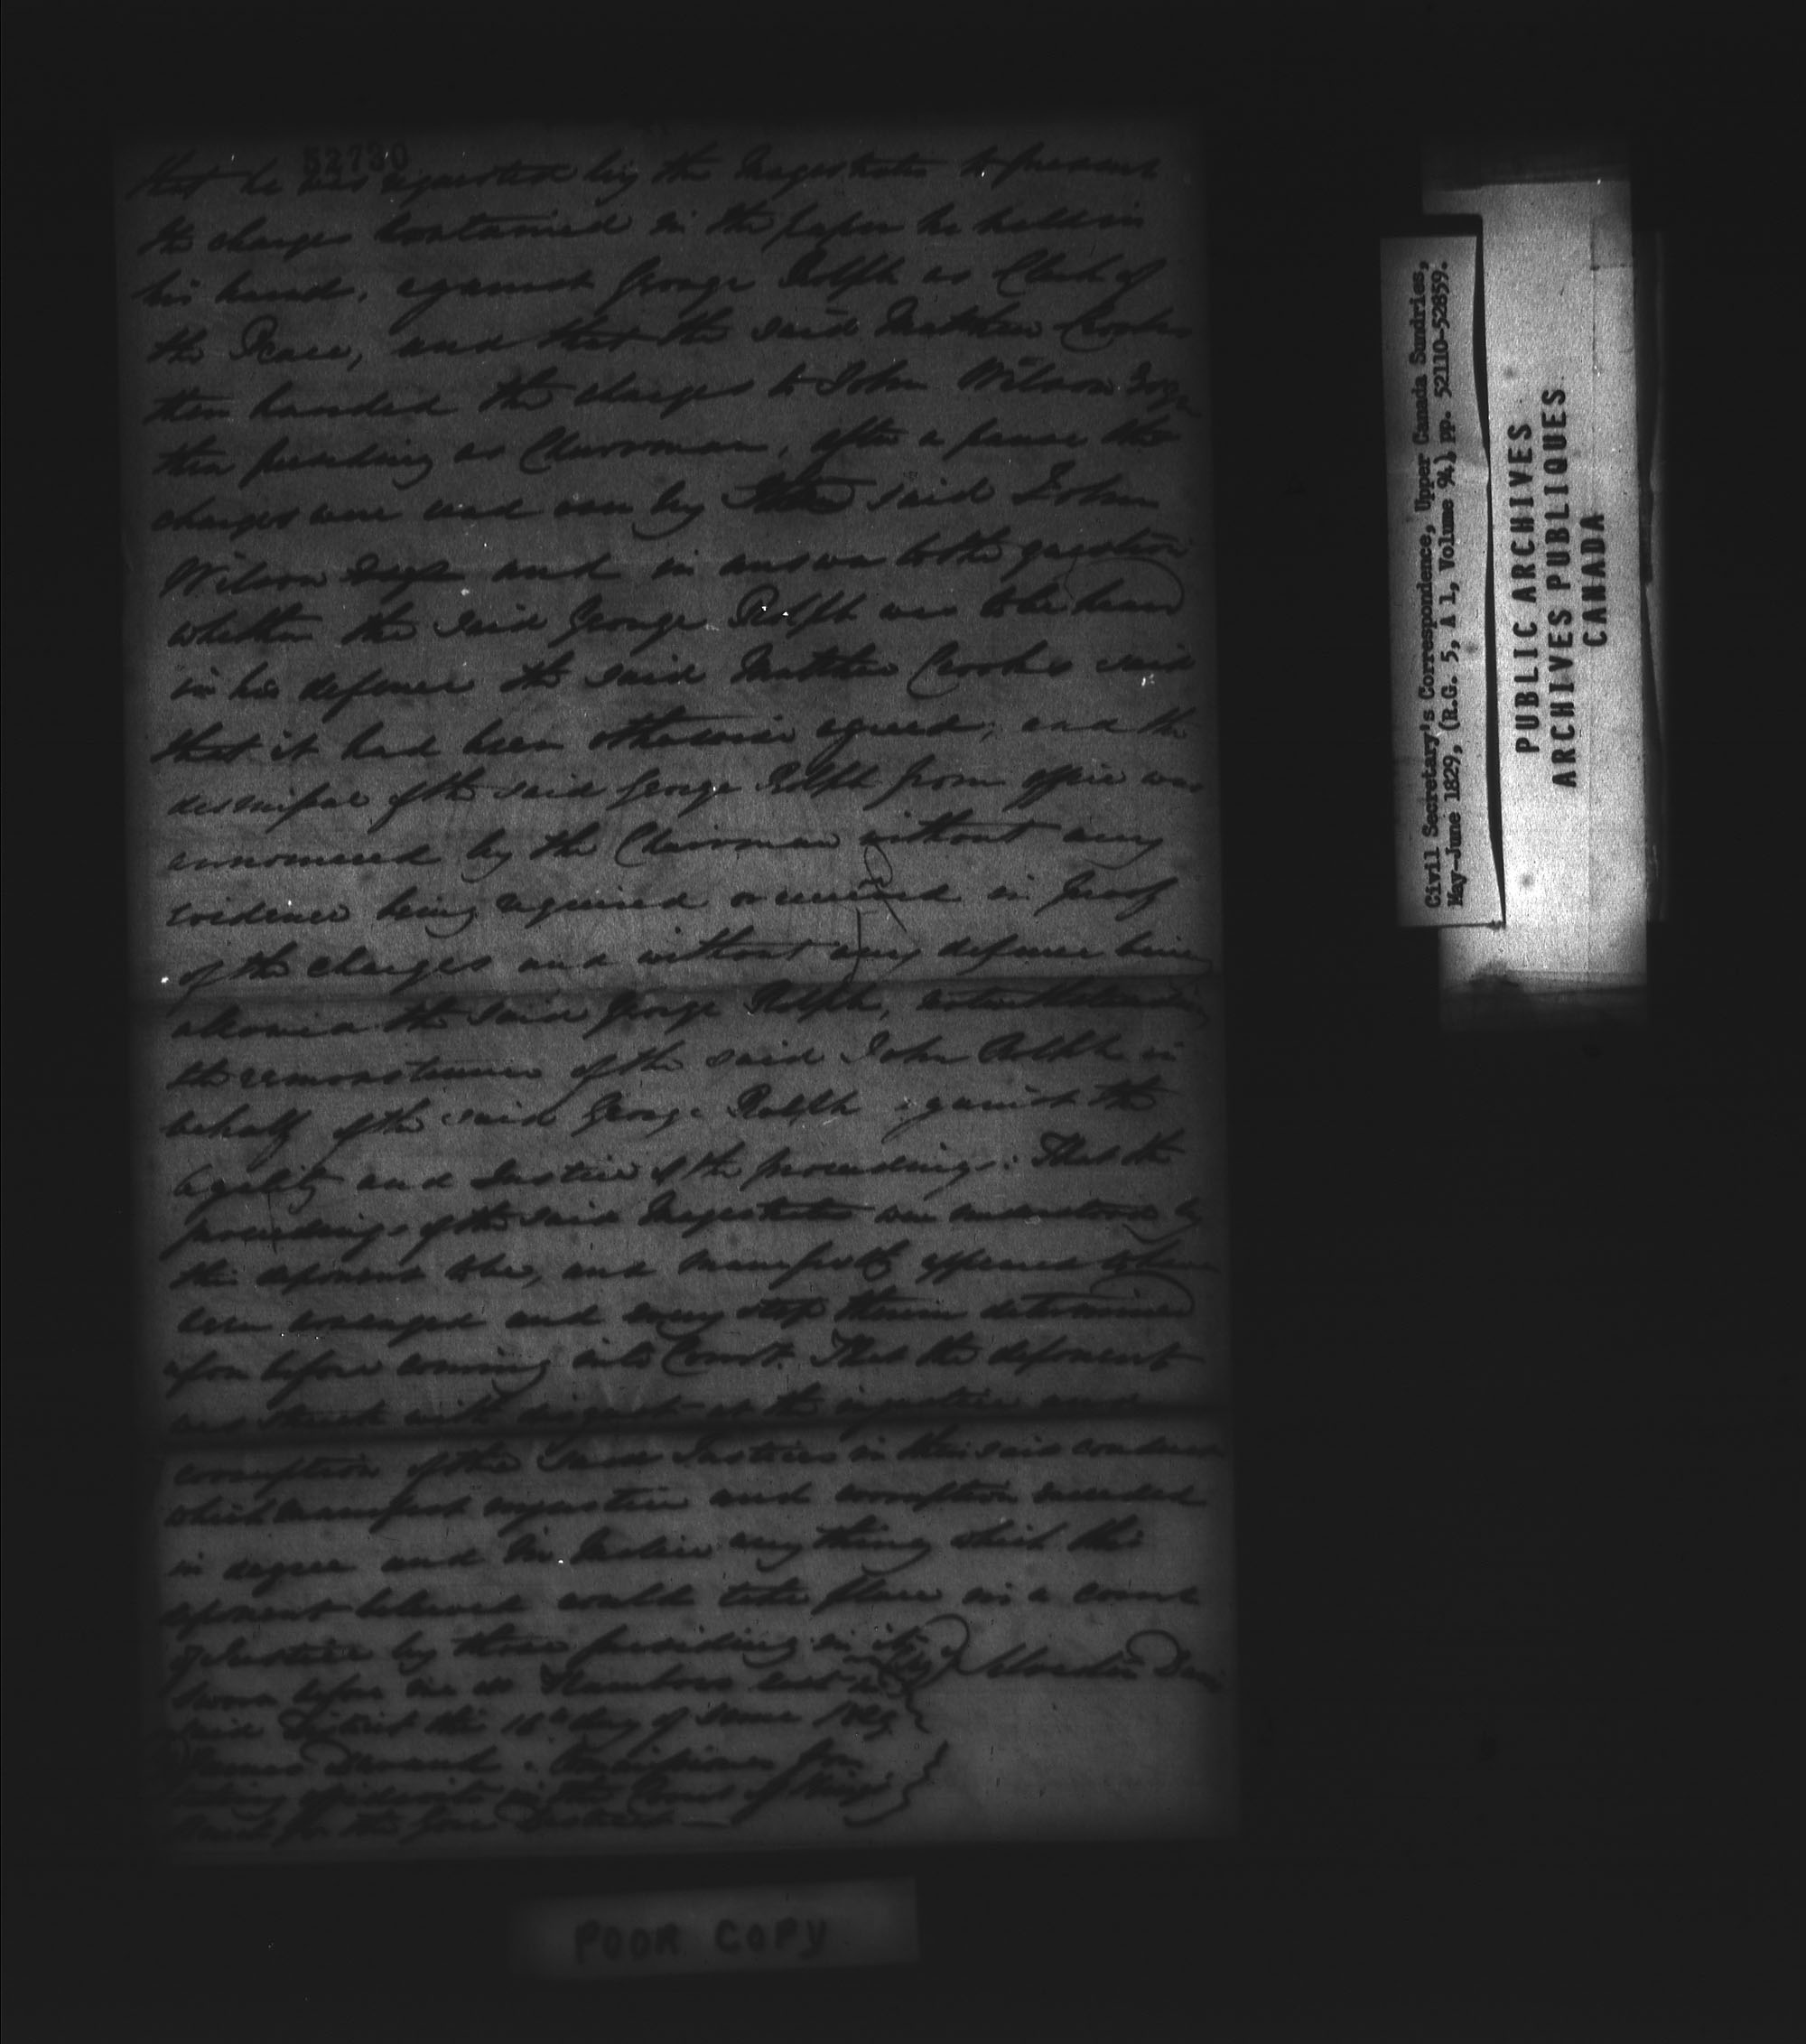 52730
that he was requested by the Magistrates to present
the charges contained in the paper he held in
his hand, against George Rolph as Clerk of
the Peace, and that the said Matthew Crooks
then handed the charges to John Wilson Esqr
then presiding as Chairman, after a pause the
charges were read over by the said John
Wilson Esqr and in answer to the question
whether the said George Rolph was to be heard
in his defence the said Matthew Crooks said
that it had been otherwise agreed; and the
dismissal of the said George Rolph from office was
announced by the Chairman without any
evidence being required or received in proof
of the charges and without any defence being
allowed the said George Rolph, notwithstanding
the remonstrance of the said John Rolph in
behalf of the said George Rolph against the
legality and Justice of the proceedings. That the
proceedings of the said Magistrates were understood by
this deponent to be, and manifestly appeared to have
been arranged and every step therein determined
upon before coming into Court. That the deponent
was struck with disgust at the injustice and
corruption of the said Justices in their said conduct
which manifest injustice and corruption exceeded
in degree and in any thing which this
deponent believed could take place in a court
of Justice by those presiding in it
Sworn before me at Flamboro west in
said District this 16th day of June 1829
James Durand. Commissioner for
taking affidavits in the Court of Kings
Bench for the Gore District
POOR COPY
Civil Secretary's Correspondence, Upper Canada Sundries,
May-June 1829, (R.G. 5, A 1, Volume 94) pp. 52110-52859.
PUBLIC ARCHIVES
ARCHIVES PUBLIQUES
CANADA